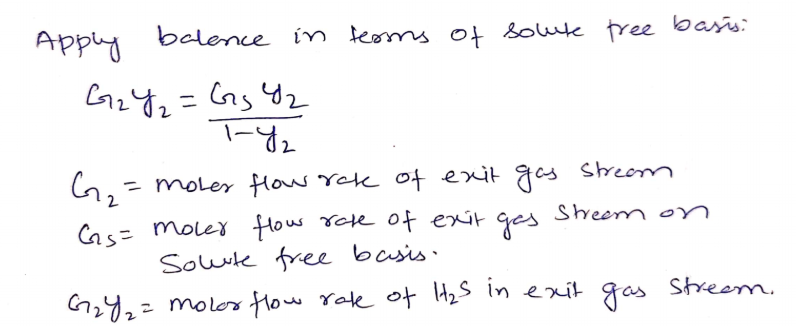 Apply balence in terms of solute free basis:
G₂y₂ = Gs y₂ / 1-y₂
G₂ = moler flow rate of exit gas stream
Gs = moler flow rate of exit gas stream on
Solute free basis.
G₂y₂ = moler flow rate of H₂S in exit gas stream.